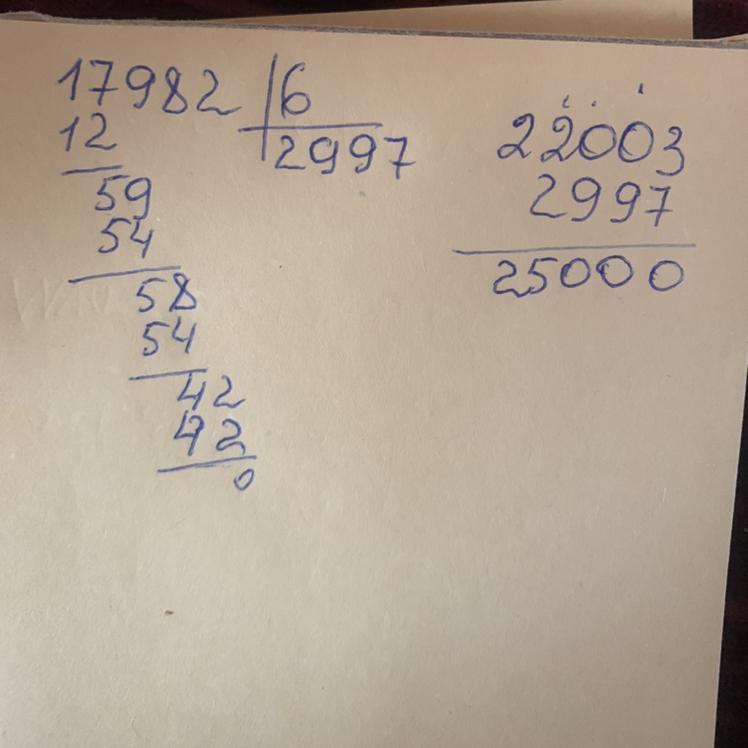 17982 6
12 2997
59
54
58
54
42
42
0
22003
2997
25000